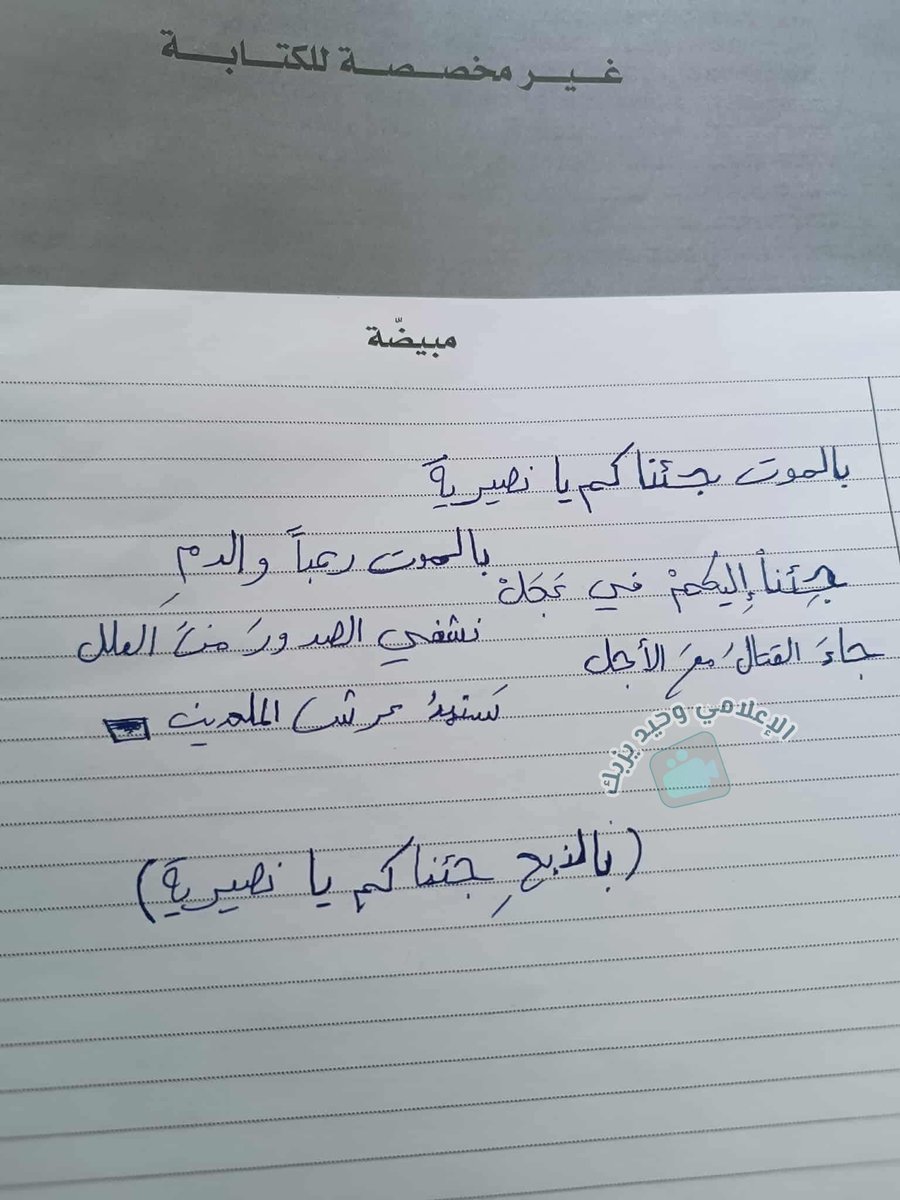 غير مخصصة للكتابة
مبيضّة
بالموت جئناكم يا نصيريةً
جِئناْ إليكمْ في عَجَلْ بالموت رعباً والدمِ
جاءَ القتالُ معَ الأجل نشفي الصدورَ منَ العلل
عرش الملحدين
الإعلامي وحيد يزبك
(بالذبحِ جئناكم يا نصيريةَ)